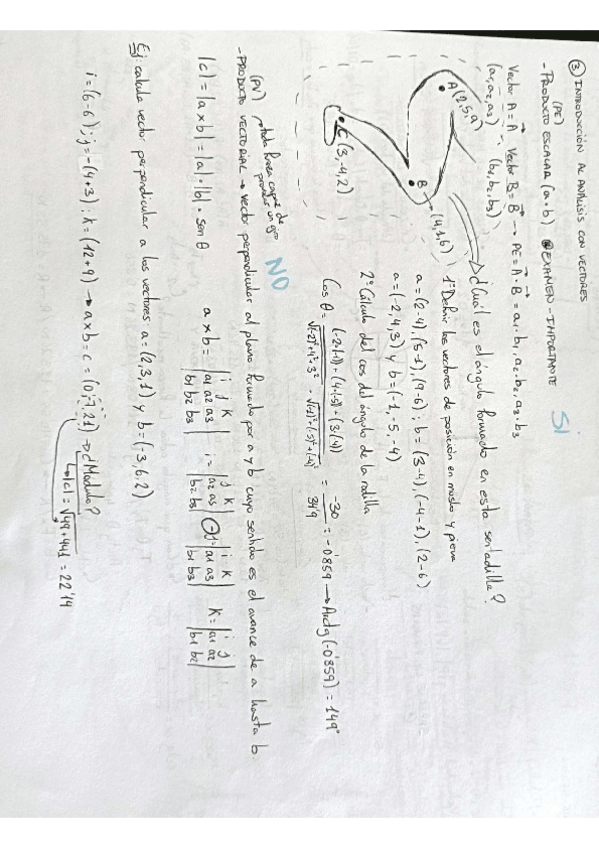 ③ INTRODUCCIÓN AL ANÁLISIS CON VECTORES
(PE)
- PRODUCTO ESCALAR (a·b) EXAMEN - IMPORTANTE SI
Vector A = A⃗ Vector B = B⃗ → PE = A⃗·B⃗ = a1·b1, a2·b2, a3·b3
(a1, a2, a3) (b1, b2, b3)
¿Cuál es el ángulo formado en esta sentadilla?
A (2,5,9)
B → (4,1,6)
C (3,-4,2)
1º Definir los vectores de posición en muslo y pierna
a = (2-4), (5-1), (9-6) ; b = (3-4), (-4-1), (2-6)
a = (-2,4,3) y b = (-1,-5,-4)
2º Cálculo del cos del ángulo de la rodilla
Cos θ = (-2·(-1)) + (4·(-5)) + (3·(-4)) / √(-2)²+4²+3² · √(-1)²+(-5)²+(-4)² = -30 / 34'9 = -0'859 → Arctg (-0'859) = 149°
NO
(PV) → toda fuerza capaz de producir un giro
- PRODUCTO VECTORIAL → vector perpendicular al plano formado por a y b cuyo sentido es el avance de a hasta b.
|c| = |a×b| = |a|·|b|·sen θ
a×b = | i j k | i = | j k | ⊖ j = | i k | k = | i j |
| a1 a2 a3 | | a2 a3 | | a1 a3 | | a1 a2 |
| b1 b2 b3 | | b2 b3 | | b1 b3 | | b1 b2 |
Ej: calcula vector perpendicular a los vectores a = (2,3,1) y b = (-3,6,2)
i = (6-6) ; j = -(4+3) ; k = (12+9) → a×b = c = (0,-7,21) → ¿Modulo?
→ |c| = √49+441 = 22'14